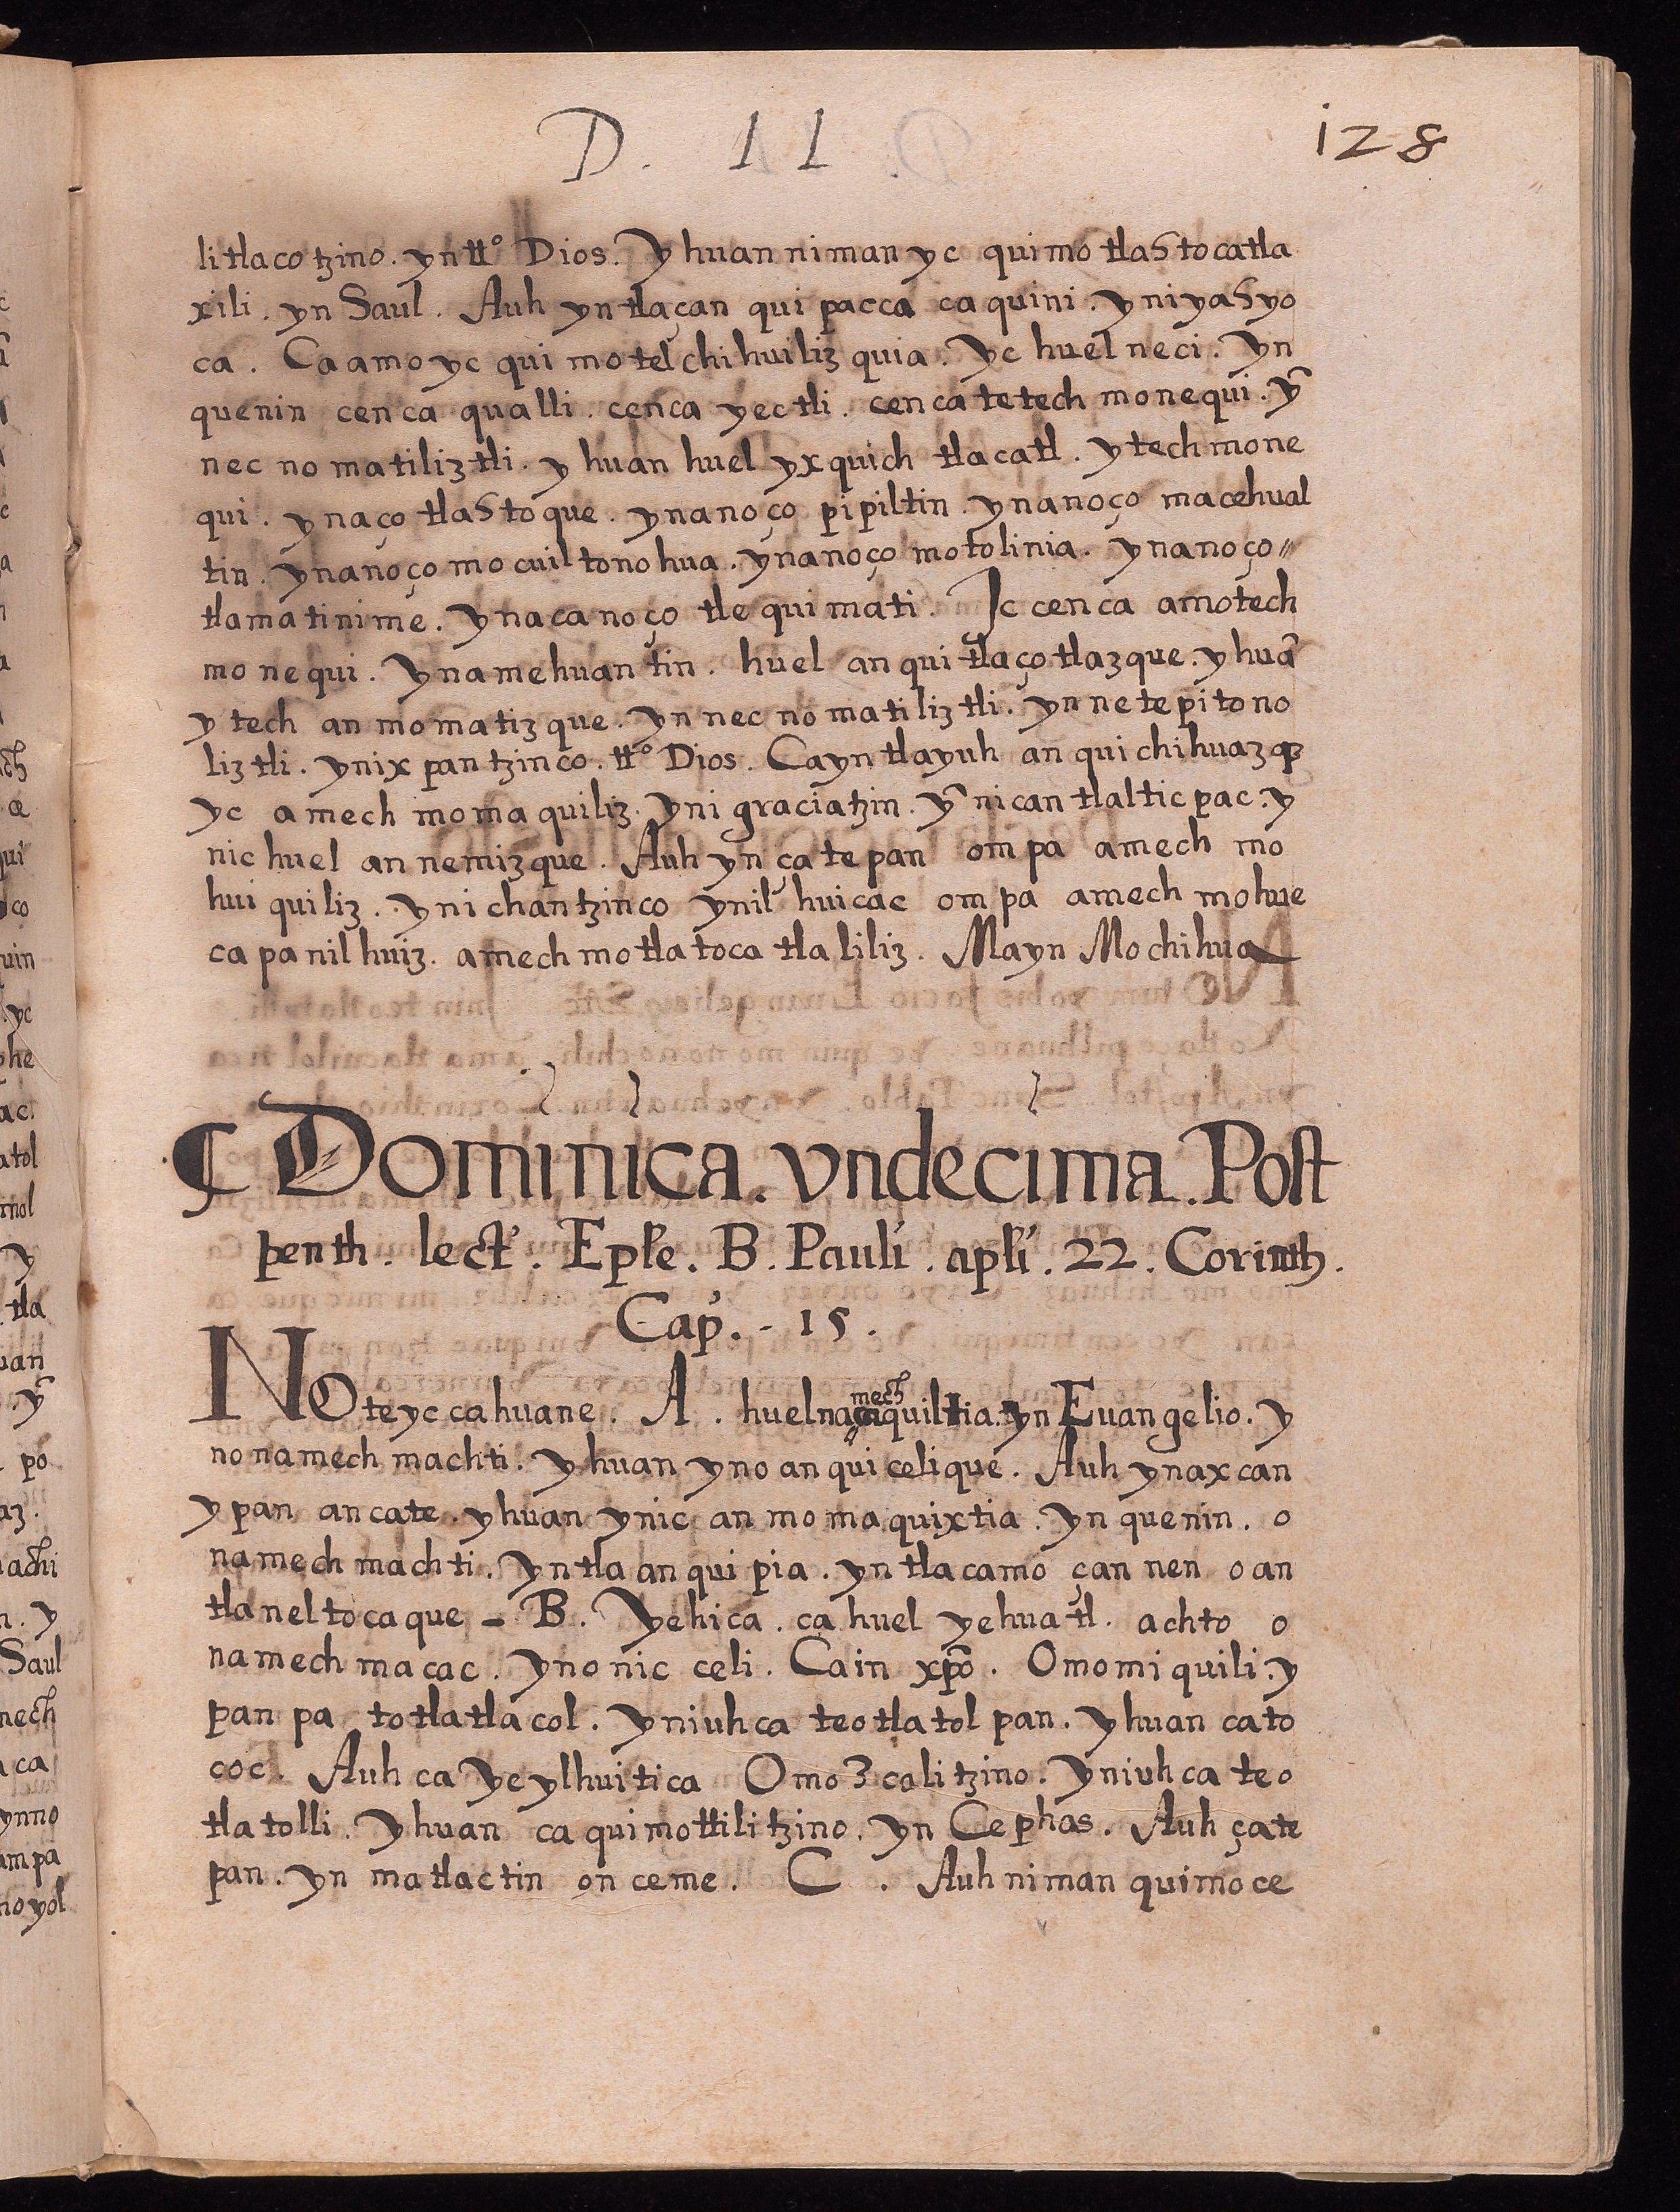 D. 11
128
litlaco tzino. yn tt° Dios. Y huan niman yc qui mo tlaStocatla
xili. yn Saul. Auh yn tlaçan qui pacca ca quini. y ni yaSyo
ca. Ca amo yc qui mo telchihuiliz quia. Yc huel neci. Yn
quenin cen ca qualli. cenca yectli. cen ca tetech monequi. ỹ
nec no matiliztli. y huan huel yxquich tlacatl. y tech mone
qui. y naço tlaStoque. ynanoço pipiltin. ynanoço macehual
tin. ynanoço mo cuiltonohua. ynanoço motolinia. ynanoço〃
tlamatinime. ynacanoço tle quimati. Ic cenca amotech
mo nequi. Ynamehuantin. huel an qui tlaço tlazque. y huã
y tech an momatizque. yn nec no matiliztli. yn netepitono
liztli. ynix pantzinco. tt° Dios. Cayn tlayuh an quichihuazq̃
yc amech momaquiliz. yni graciatzin. ỹ nican tlalticpac. y
nic huel an nemizque. Auh yn çatepan ompa amech mo
hui quiliz. yni chantzinco ynil huicac ompa amech mohue
ca panilhuiz. amech motlatoca tlaliliz. Mayn Mochihua
¶ Dominica. vndecima. Post
penth. lect'. Eple. B. Pauli. apli. 22. Corinth.
Cap. - 15.
NO teyccahuane. A. huelnamechquiltia. yn Euangelio. y
no namech machti. y huan yno an quicelique. Auh ynaxcan
y pan ancate. y huan ynic an mo maquixtia. yn quenin. o
namech machti. yntla an qui pia. yn tlacamo çan nen o an
tlaneltocaque - B. Yehica. ca huel yehuatl. achto o
namech macac. yno nic celi. Cain xpõ. Omomiquili. y
pan pa totlatlacol. yniuhca teotlatol pan. y huan cato
coc. Auh ca yeylhuitica Omo3calitzino. yniuhca teo
tlatolli. y huan ca quimottilitzino. yn Cephas. Auh çate
pan. yn matlactin onceme. C. Auh niman quimoce